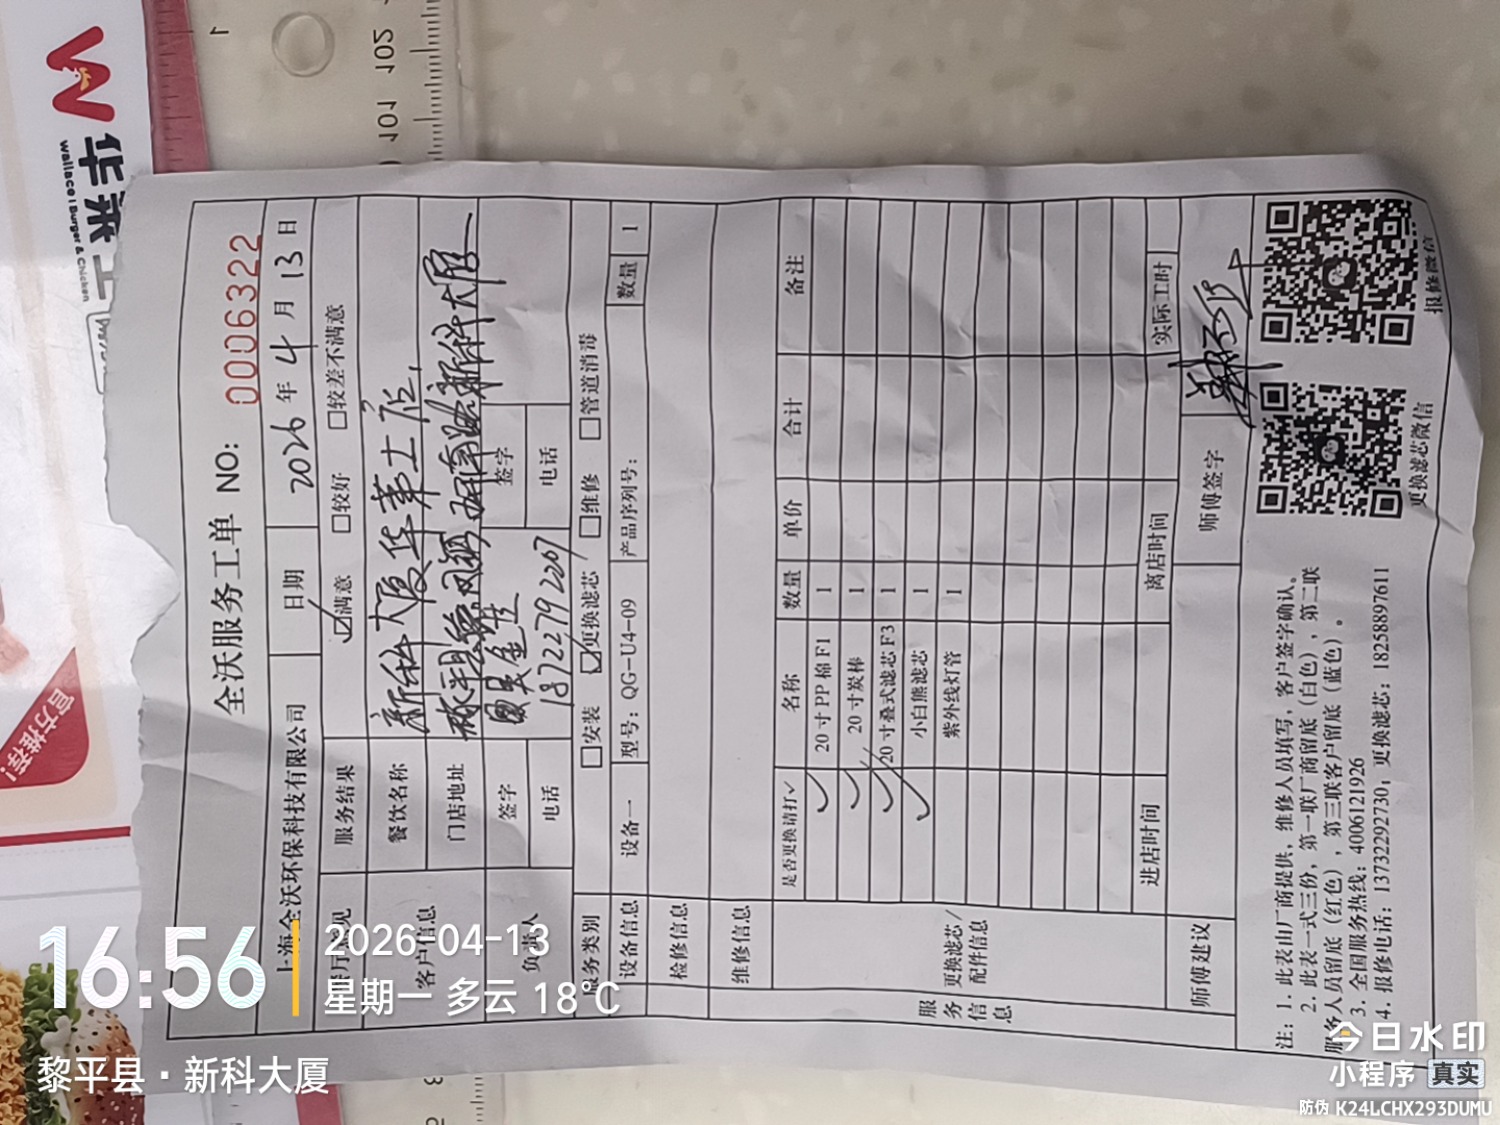 华莱士
Wallace | Burger & Chicken
官方推荐!
101 102
全沃服务工单 NO: 0006322
上海全沃环保科技有限公司 日期 2026 年 4 月 13 日
服务结果 ☑满意 □较好 □较差不满意
客户信息 餐饮名称 新科大厦华莱士店
门店地址 新科大厦
负责人 签字 签字
电话 18722792207 电话
服务类别 □安装 ☑更换滤芯 □维修 □管道消毒
设备信息 设备一 型号: QG-U4-09 产品序列号: 数量 1
检修信息
维修信息
服务信息
更换滤芯/配件信息
是否更换请打✓ 名称 数量 单价 合计 备注
✓ 20 寸 PP 棉 F1 1
✓ 20 寸炭棒 1
✓ 20 寸叠式滤芯 F3 1
✓ 小白熊滤芯 1
紫外线灯管 1
进店时间 离店时间 实际工时
师傅建议 师傅签字
注: 1. 此表由厂商提供, 维修人员填写, 客户签字确认。
2. 此表一式三份, 第一联厂商留底 (白色), 第二联
服务人员留底 (红色), 第三联客户留底 (蓝色)。
3. 全国服务热线: 4006121926
4. 报修电话: 13732292730; 更换滤芯: 18258897611
更换滤芯微信
报修微信
16:56
2026-04-13
星期一 多云 18°C
黎平县·新科大厦
今日水印
小程序 真实
防伪 K24LCHX293DUMU